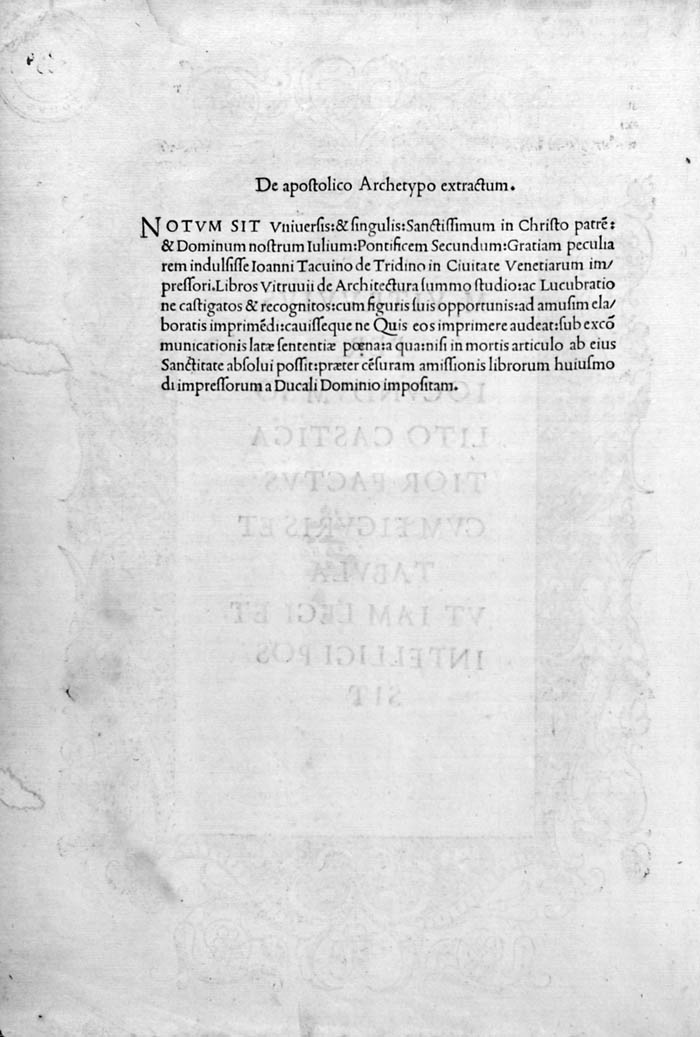 De apostolico Archetypo extractum.
NOTVM SIT Vniuersis:& singulis:Sanctissimum in Christo patrē:
& Dominum nostrum Iulium:Pontificem Secundum:Gratiam peculia
rem indulsisse Ioanni Tacuino de Tridino in Ciuitate Venetiarum im/
pressori.Libros Vitruuii de Architectura summo studio:ac Lucubratio
ne castigatos & recognitos:cum figuris suis opportunis:ad amusim ela/
boratis imprimēdi:cauisseque ne Quis eos imprimere audeat:sub excō
municationis latæ sententiæ pœna:a qua:nisi in mortis articulo ab eius
Sanctitate absolui possit:præter cēsuram amissionis librorum huiusmo
di impressorum a Ducali Dominio impositam.
IOCVNDVM SO
LITO CASTIGA
TIOR FACTVS
CVM FIGVRIS ET
TABVLA
VT IAM LEGI ET
INTELLIGI POS
SIT